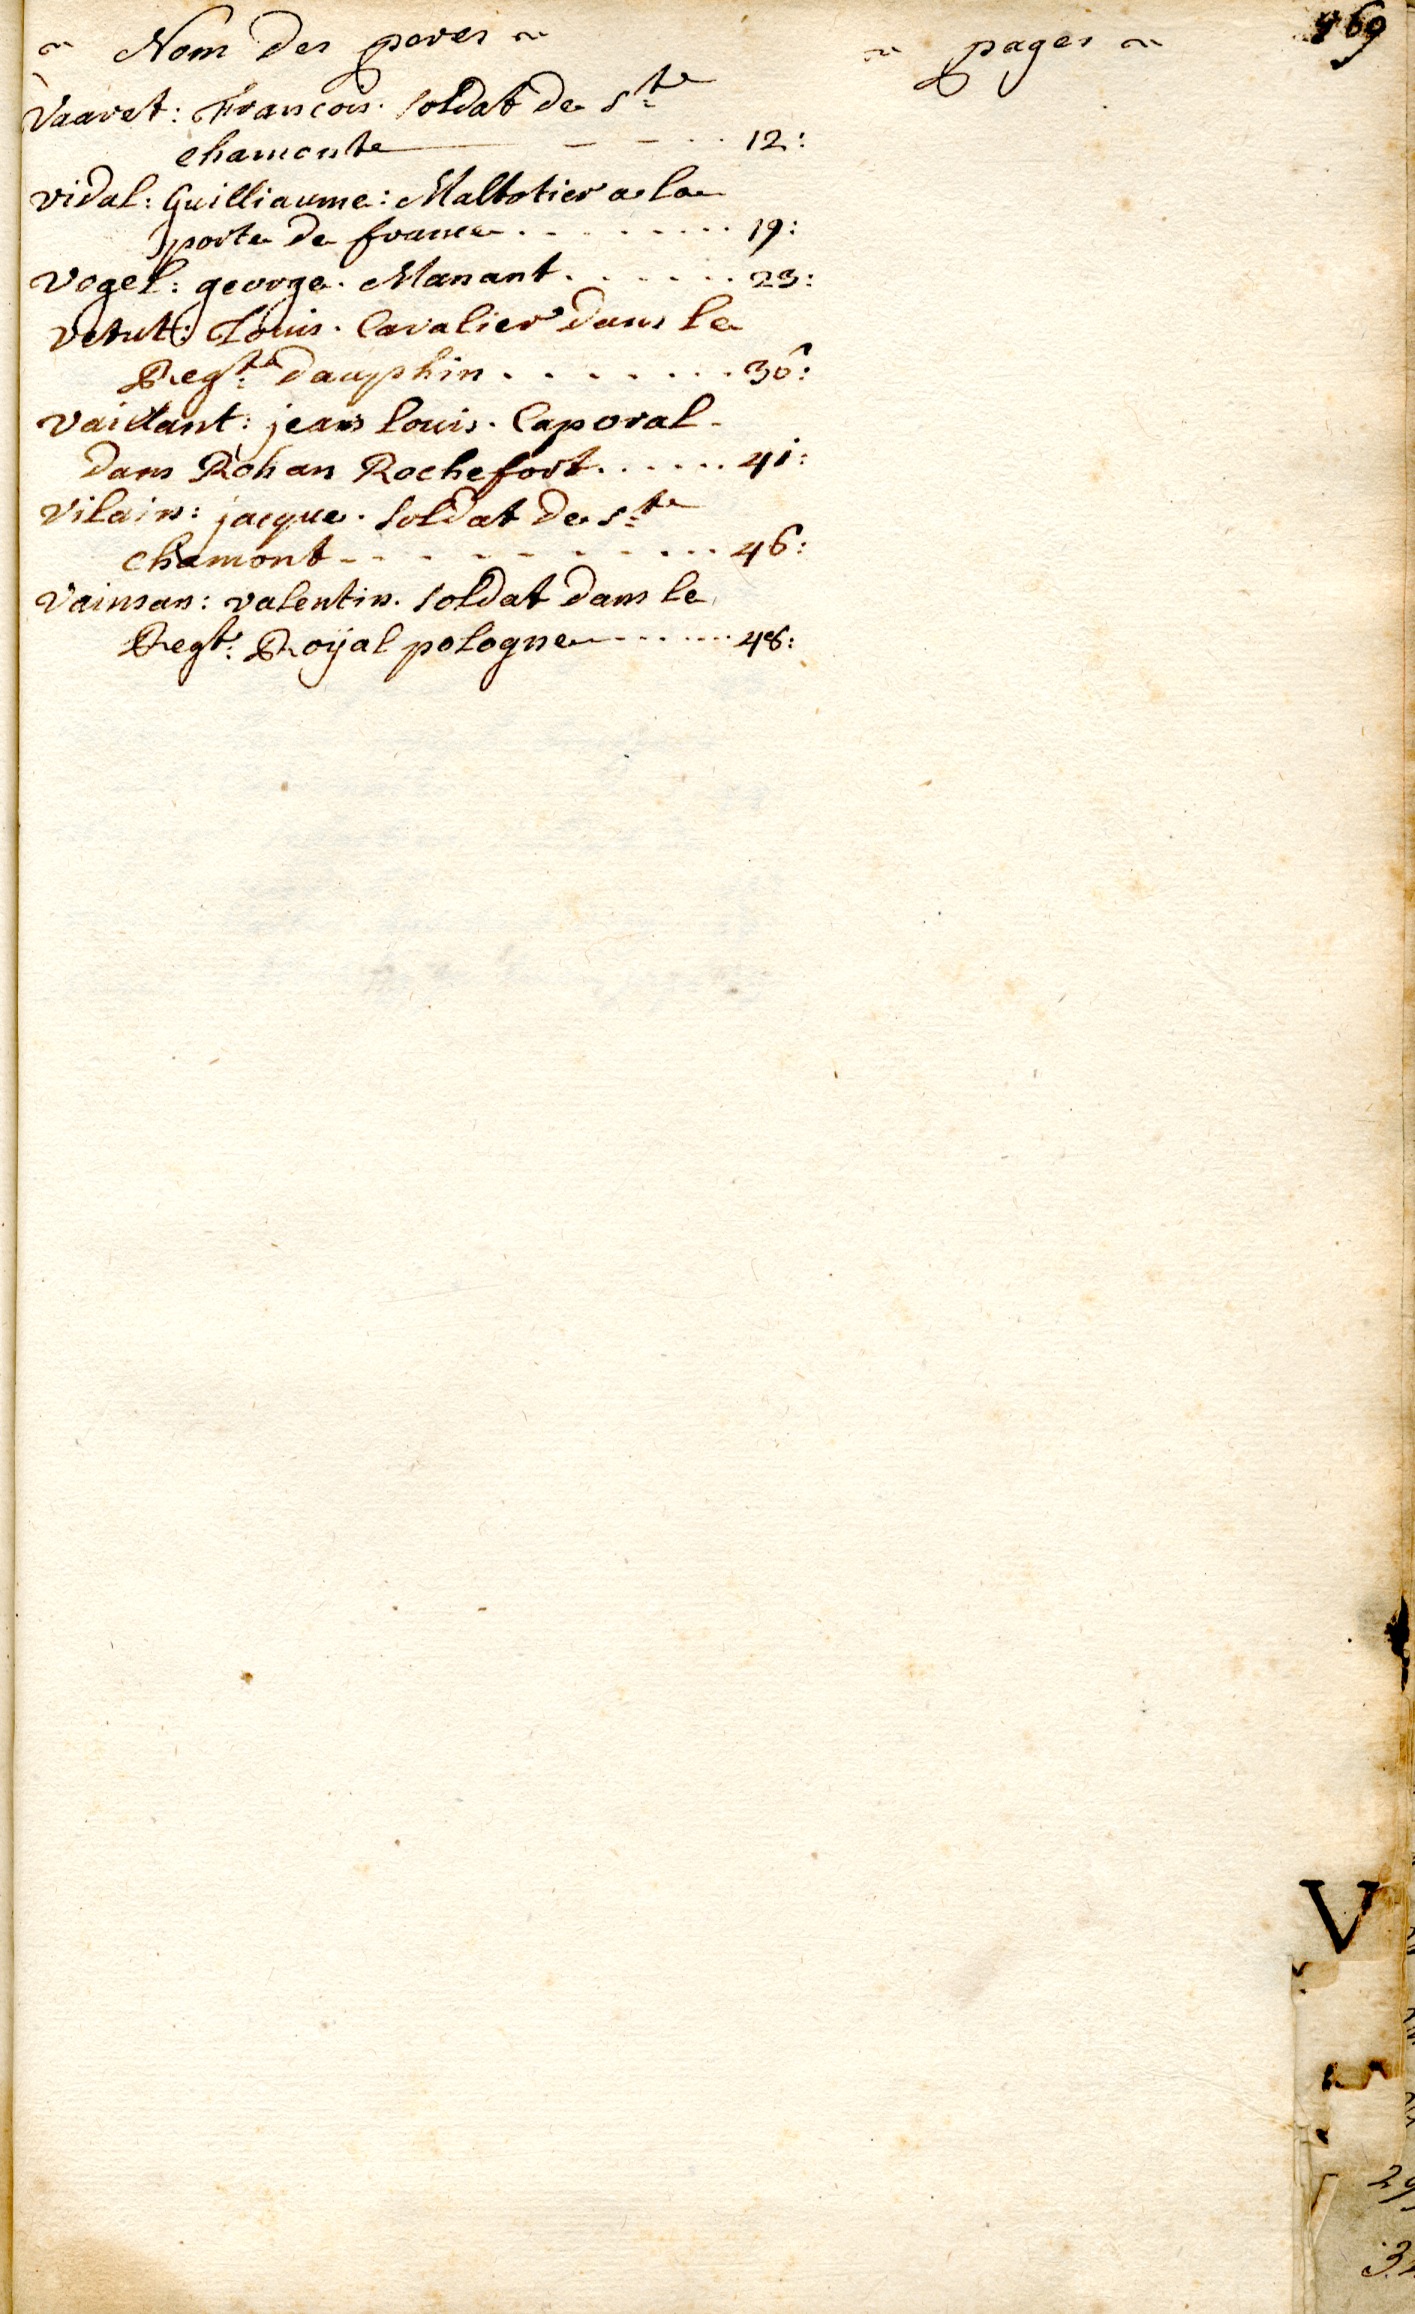 ~ Nom des peres ~ ~ pages ~ 169
Vaaret: Francois. soldat de Ste
chamonte - - - . . 12:
vidal: Guilliaume: Maltotier a la
porte de france . . . . . . . . . 19:
Vogel: george. Manant . . . . . . 23:
Vetut: Louis. Cavalier dans le
Regte: dauphin . . . . . . . . 36:
Vaillant: jean louis. Caporal
dans Rohan Rochefort . . . . . . 41:
Vilain: jacque. soldat de Ste
chamont - - - - - - - - . . . 46:
Vainsan: valentin. soldat dans le
Regt: Roÿal pologne - - . . . . . 48:
V